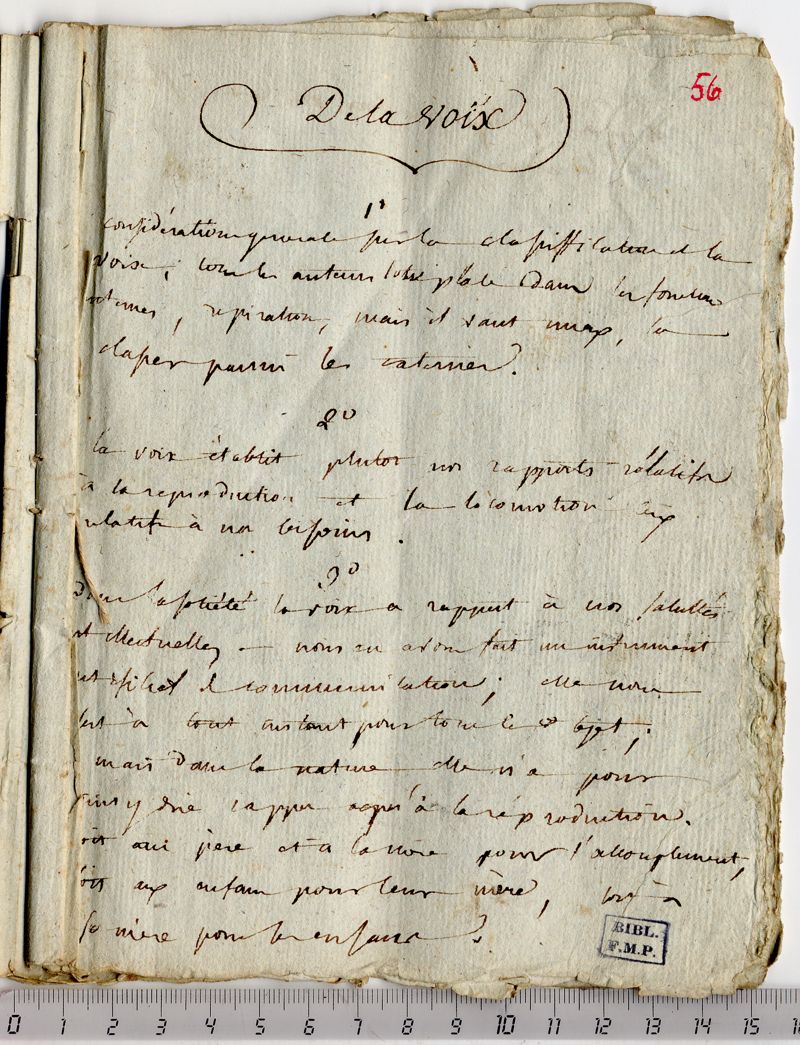 56
De la voix
1°
considération generale sur la classiffication de la
voix, tous les auteurs l'ont placé dans les fonctions
internes, respiration, mais il vaut mieux, la
classer parmi les externes.
2°
la voix établit plutot nos rapports rélatifs
à la reproduction et la locomotion ceux
relatifs à nos besoins.
3°
dans la société la voix a rapport à nos facultés
intellectuelles — nous en avons fait un instrument
artificiel de communication; elle nous
sert à tout instant pour tous les objets;
mais dans la nature elle n'a pour
ainsy dire rapport qu'à la réproduction.
soit au père et a la mère pour l'accouplement,
soit aux enfans pour leur mère, soit à
la mère pour les enfans.
BIBL.
F.M.P.
0 1 2 3 4 5 6 7 8 9 10 11 12 13 14 15 16